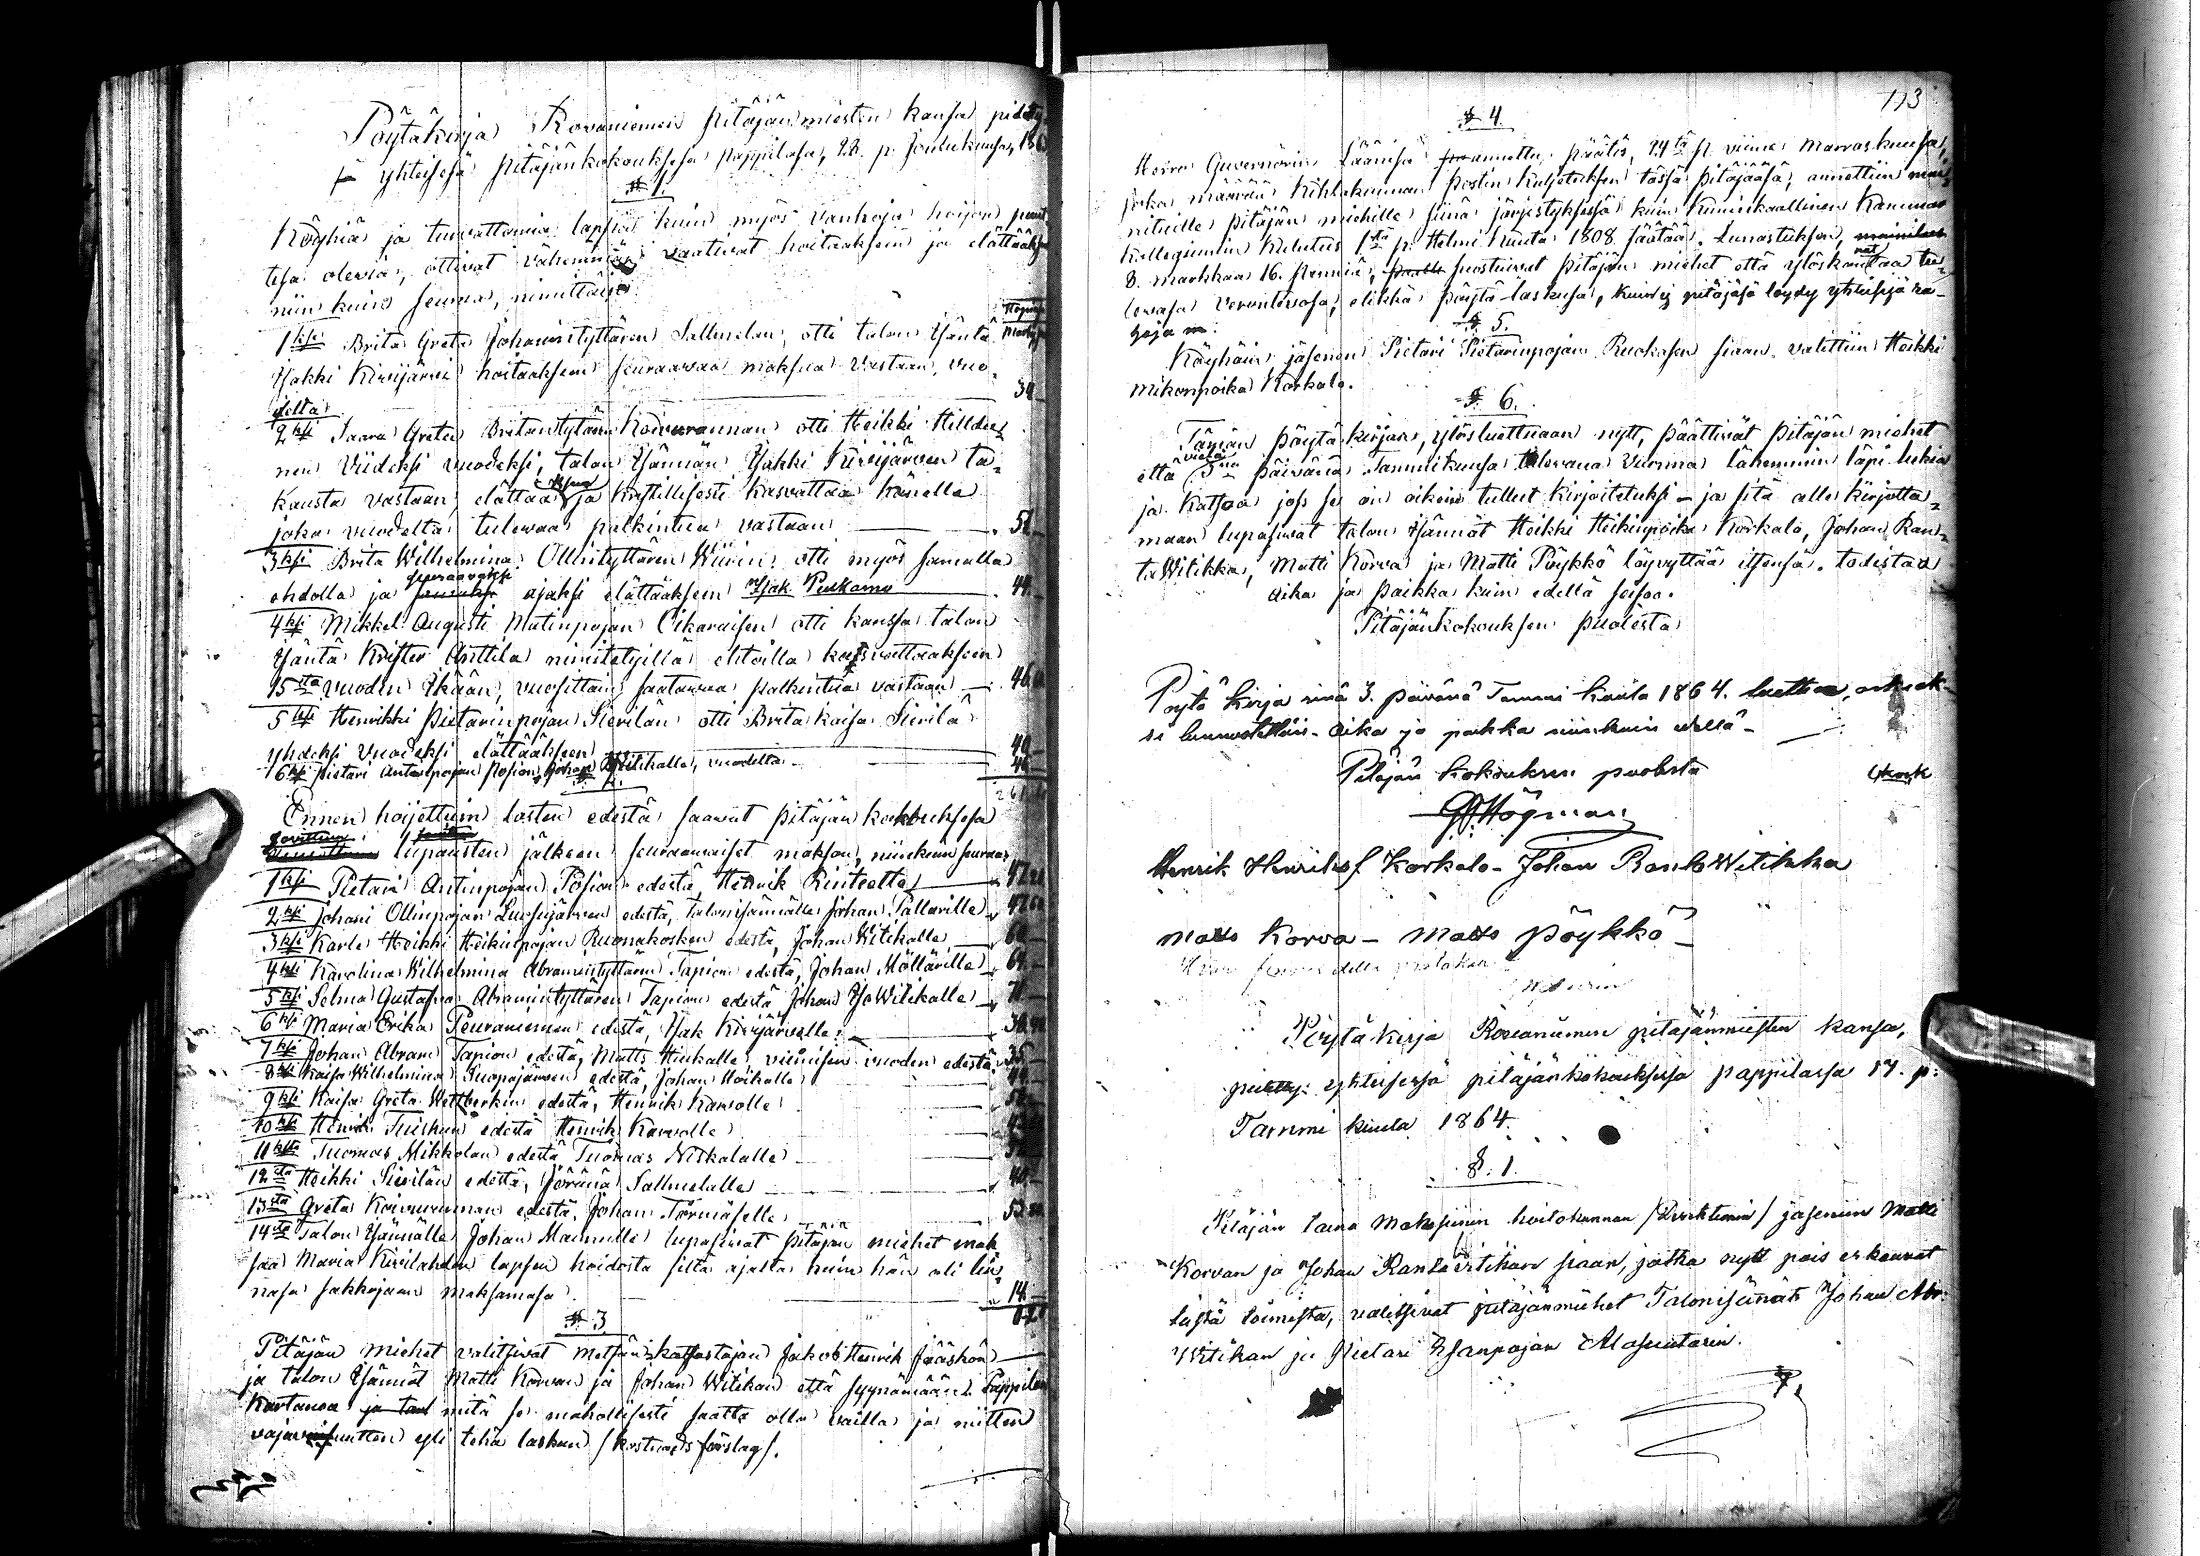 Pöytäkirja Rovaniemen pitäjän miesten kansa
yhteisesä pitäjänkokouksesa pappilasa, 28. p. Joulukuusa,
§ 1.
Köyhiä ja turvattomia lapsia kuin myös vanhoja
tesa olevia, ottivat vähemmän vaativat hoitaaksein ja elättääksein
niin kuin seuraa, nimittäin
1ksi Brita Greta Johanintyttären Sallmelan, otti talon Ysäntä
Ysakki Kirvijärvi hoitaaksein seuraavaa maksua vastaan, vuo-
delta
2ksi Saara Greta Britantytären Koivurannan otti Heikki
nen Viideksi vuodeksi, talon Ysännän Ysakki Kirvijärven ta-
kausta vastaan, elättää ja kristillisesti kasvattaa hänellä
joka vuodelta tulevaa palkintua vastaan
3ksi Brita Wilhelmina Ollintyttären otti myös samalla
ehdolla ja seuraavaksi ajaksi elättääksein Ysak Peukamo 44
4ksi Mikkel Augusti Matinpojan Oikaraisen otti kanssa talon
Ysäntä Krister Anttila nimitetyillä ehdoilla kasvattaaksein
15sta vuoden Ikään, vuosittain saatavaa palkintua vastaan
5ksi Henrikki Pietarinpojan Sierilän otti Brita Kaisa Sierilä
yhdeksi vuodeksi elättääksein 40
6ksi Pietari Antinpojan Posion, Johan Witikalle, vuodelta
Ennen hoijettuin lasten edestä saavat pitäjän kokouksesa
lupausten jälkeen seuraavaiset makson, niinkuin seuraa
1ksi Pietari Antinpojan Posion edestä, Henrik Rinteelle
2ksi Johani Ollinpojan Luosujärven edestä, talonisännälle Johan Pallarille
3ksi Karle Heikki Heikinpojan Ruonakosken edestä, Johan Witikalle
4ksi Karolina Wilhelmina Abramintyttären Tapion edestä, Johan Möllärille 64
5ksi Selma Gustafva Abramintyttären Tapion edestä Johan YsoWitikalle
6ksi Maria Erika Peuraniemen edestä, Ysak Kirvijärvelle
7ksi Johan Abram Tapion edestä, Matts Hiukalle, viimisen vuoden edestä 35
8ksi Kaisa Wilhelmina Suopajärven edestä, Johan Höikalle
9ksi Kaisa Greta edestä, Henrik Karvolle
10ksi Henrik Tuiskun edestä Henrik Karvolle
11sta Tuomas Mikkolan edestä Tuomas Niskalalle
12sta Heikki Sierilän edestä, Jöränä Sallmelalle 40
13sta Greta Koivurannan edestä, Johan Törmäselle
14sta Talon Ysännälle Johan lupasivat pitäjän miehet mak
saa Maria Kirvilahden lapsen hoidosta siltä ajalta kuin hän oli lin-
nasa sakkojaan maksamasa 14
§ 3
Pitäjän miehet valitsivat metsän katsastajan Jakob Henrik Jääskön
ja talon Ysännät Matti Korvan ja Johan Witikan että syynämään Pappilan
Kartanoa mitä se mahollisesti saatta olla vailla ja niitten
vajavaisuutten yli tehä laskun /kostnads förslag/.
113
§ 4.
Herra Guvernörin Läänisä annettu päätös, 24tä p. viime Marraskuusa,
joka määrää Kihlakunnan postin kuljetuksen täsä pitäjääsä, annettiin mai-
nituille pitäjän miehille siinä järjestyksesä kuin Keninkaallinen Kammar
kollegiumin Kuulutus 1stä p. Helmi kuuta 1808 säätää. Lunastuksen,
8. markkaa 16. penniä, suostuivat pitäjän miehet että ylöskantaa tu-
levasa veronkosa, elikkä pöytä laskusa, kuin ei pitäjäsä löydy yhteisjä ra-
hoja
§ 5.
Köyhäin jäsenen Pietari Pietarinpojan Ruokasen siaan valittiin Heikki
Mikonpoika Korkalo.
§ 6.
Tämän pöytäkirjan, ylösluettuaan nytt, päättivät Pitäjän miehet
että vielä 3na päivänä Tammikuusa tulevana Vuonna lähemmin läpi lukia
ja katsoa jos se on oikein tullut kirjoitetuksi - ja sitä alle kirjotta-
maan lupasivat talon Ysännät Heikki Heikinpoika Korkalo, Johan Ran-
taWitikka, Matti Korva ja Matti Pöykkö löyvyttää itsensä. todistaa
aika ja paikka kuin edellä seisoo.
Pitäjänkokouksen puolesta
Pöytä kirja sinä 3. päivänä Tammi kuuta 1864. luettua, oikiak-
si tunnustettiin - Aika ja paikka niinkuin edellä -
Pitäjän kokouksen puolesta
Högman
Henrik Henrikss Korkalo - Johan RantaWitikka
Matts Korva - Matts Pöykkö
Pöytäkirja Rovaniemen pitäjänmiesten kansa,
pidetty yhteisessä pitäjänkokouksessa pappilassa 17. p:
Tammi kuuta 1864.
§. 1.
Pitäjän laina Makasiinin hoitokunnan /Direktionin/ jäsenein Matti
Korvan ja Johan Rantawitikan siaan, jotka nytt pois erkanevat
tästä toimesta, valitsivat pitäjänmiehet Talonisännät Johan
Witikan ja Pietari Ysanpojan Alasuutarin.